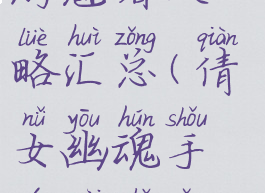 lüè huì zǒng qiàn
略汇总(倩
nǚ yōu hún shǒu
女幽魂手